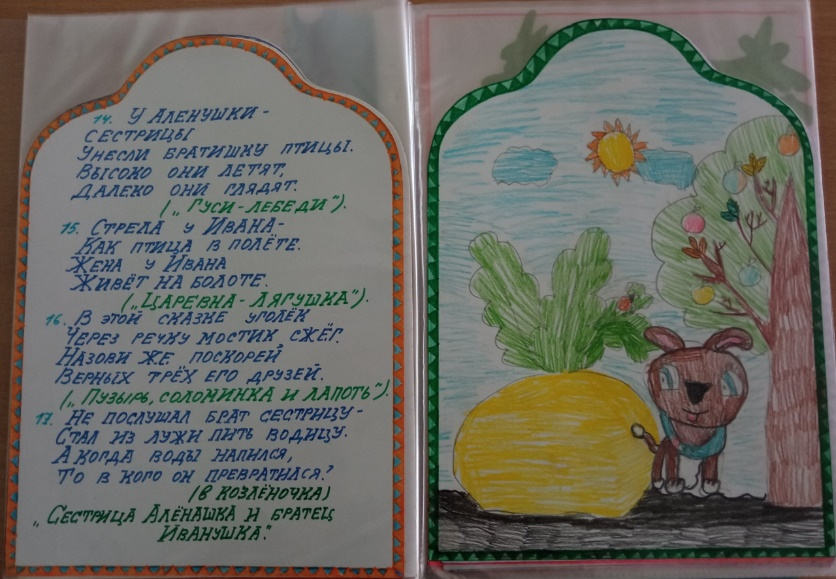 14. У АЛЕНУШКИ-
СЕСТРИЦЫ
УНЕСЛИ БРАТИШКУ ПТИЦЫ.
ВЫСОКО ОНИ ЛЕТЯТ,
ДАЛЕКО ОНИ ГЛЯДЯТ.
(„ГУСИ-ЛЕБЕДИ").
15. СТРЕЛА У ИВАНА-
КАК ПТИЦА В ПОЛЁТЕ.
ЖЕНА У ИВАНА
ЖИВЁТ НА БОЛОТЕ.
(„ЦАРЕВНА-ЛЯГУШКА").
16. В ЭТОЙ СКАЗКЕ УГОЛЁК
ЧЕРЕЗ РЕЧКУ МОСТИК СЖЁГ.
НАЗОВИ ЖЕ ПОСКОРЕЙ
ВЕРНЫХ ТРЁХ ЕГО ДРУЗЕЙ.
(„ПУЗЫРЬ, СОЛОМИНКА И ЛАПОТЬ").
17. НЕ ПОСЛУШАЛ БРАТ СЕСТРИЦУ-
СТАЛ ИЗ ЛУЖИ ПИТЬ ВОДИЦУ.
А КОГДА ВОДЫ НАПИЛСЯ,
ТО В КОГО ОН ПРЕВРАТИЛСЯ?
(В КОЗЛЁНОЧКА)
„СЕСТРИЦА АЛЁНАШКА И БРАТЕЦ
ИВАНУШКА."